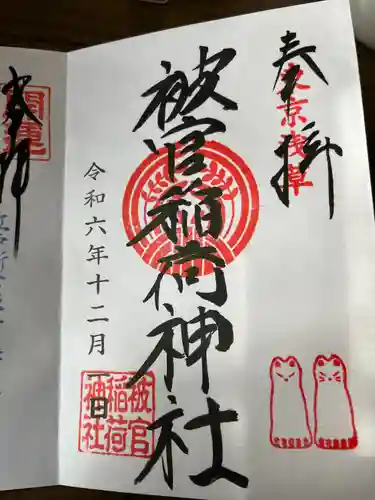 奉拝
東京浅草
被官稲荷神社
被官
稲荷
神社
令和六年十二月一日
開運